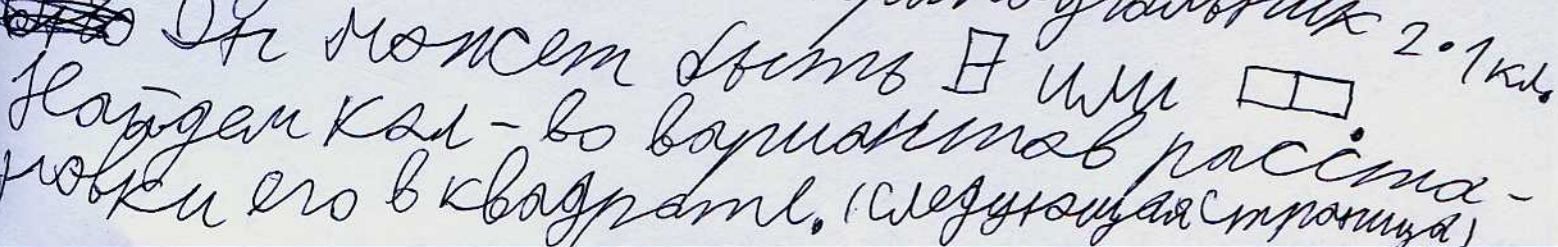 прямоугольник 2·1 кл.
Он может быть или .
Найдем кол-во вариантов расста-
новки его в квадрате. (следующая страница)